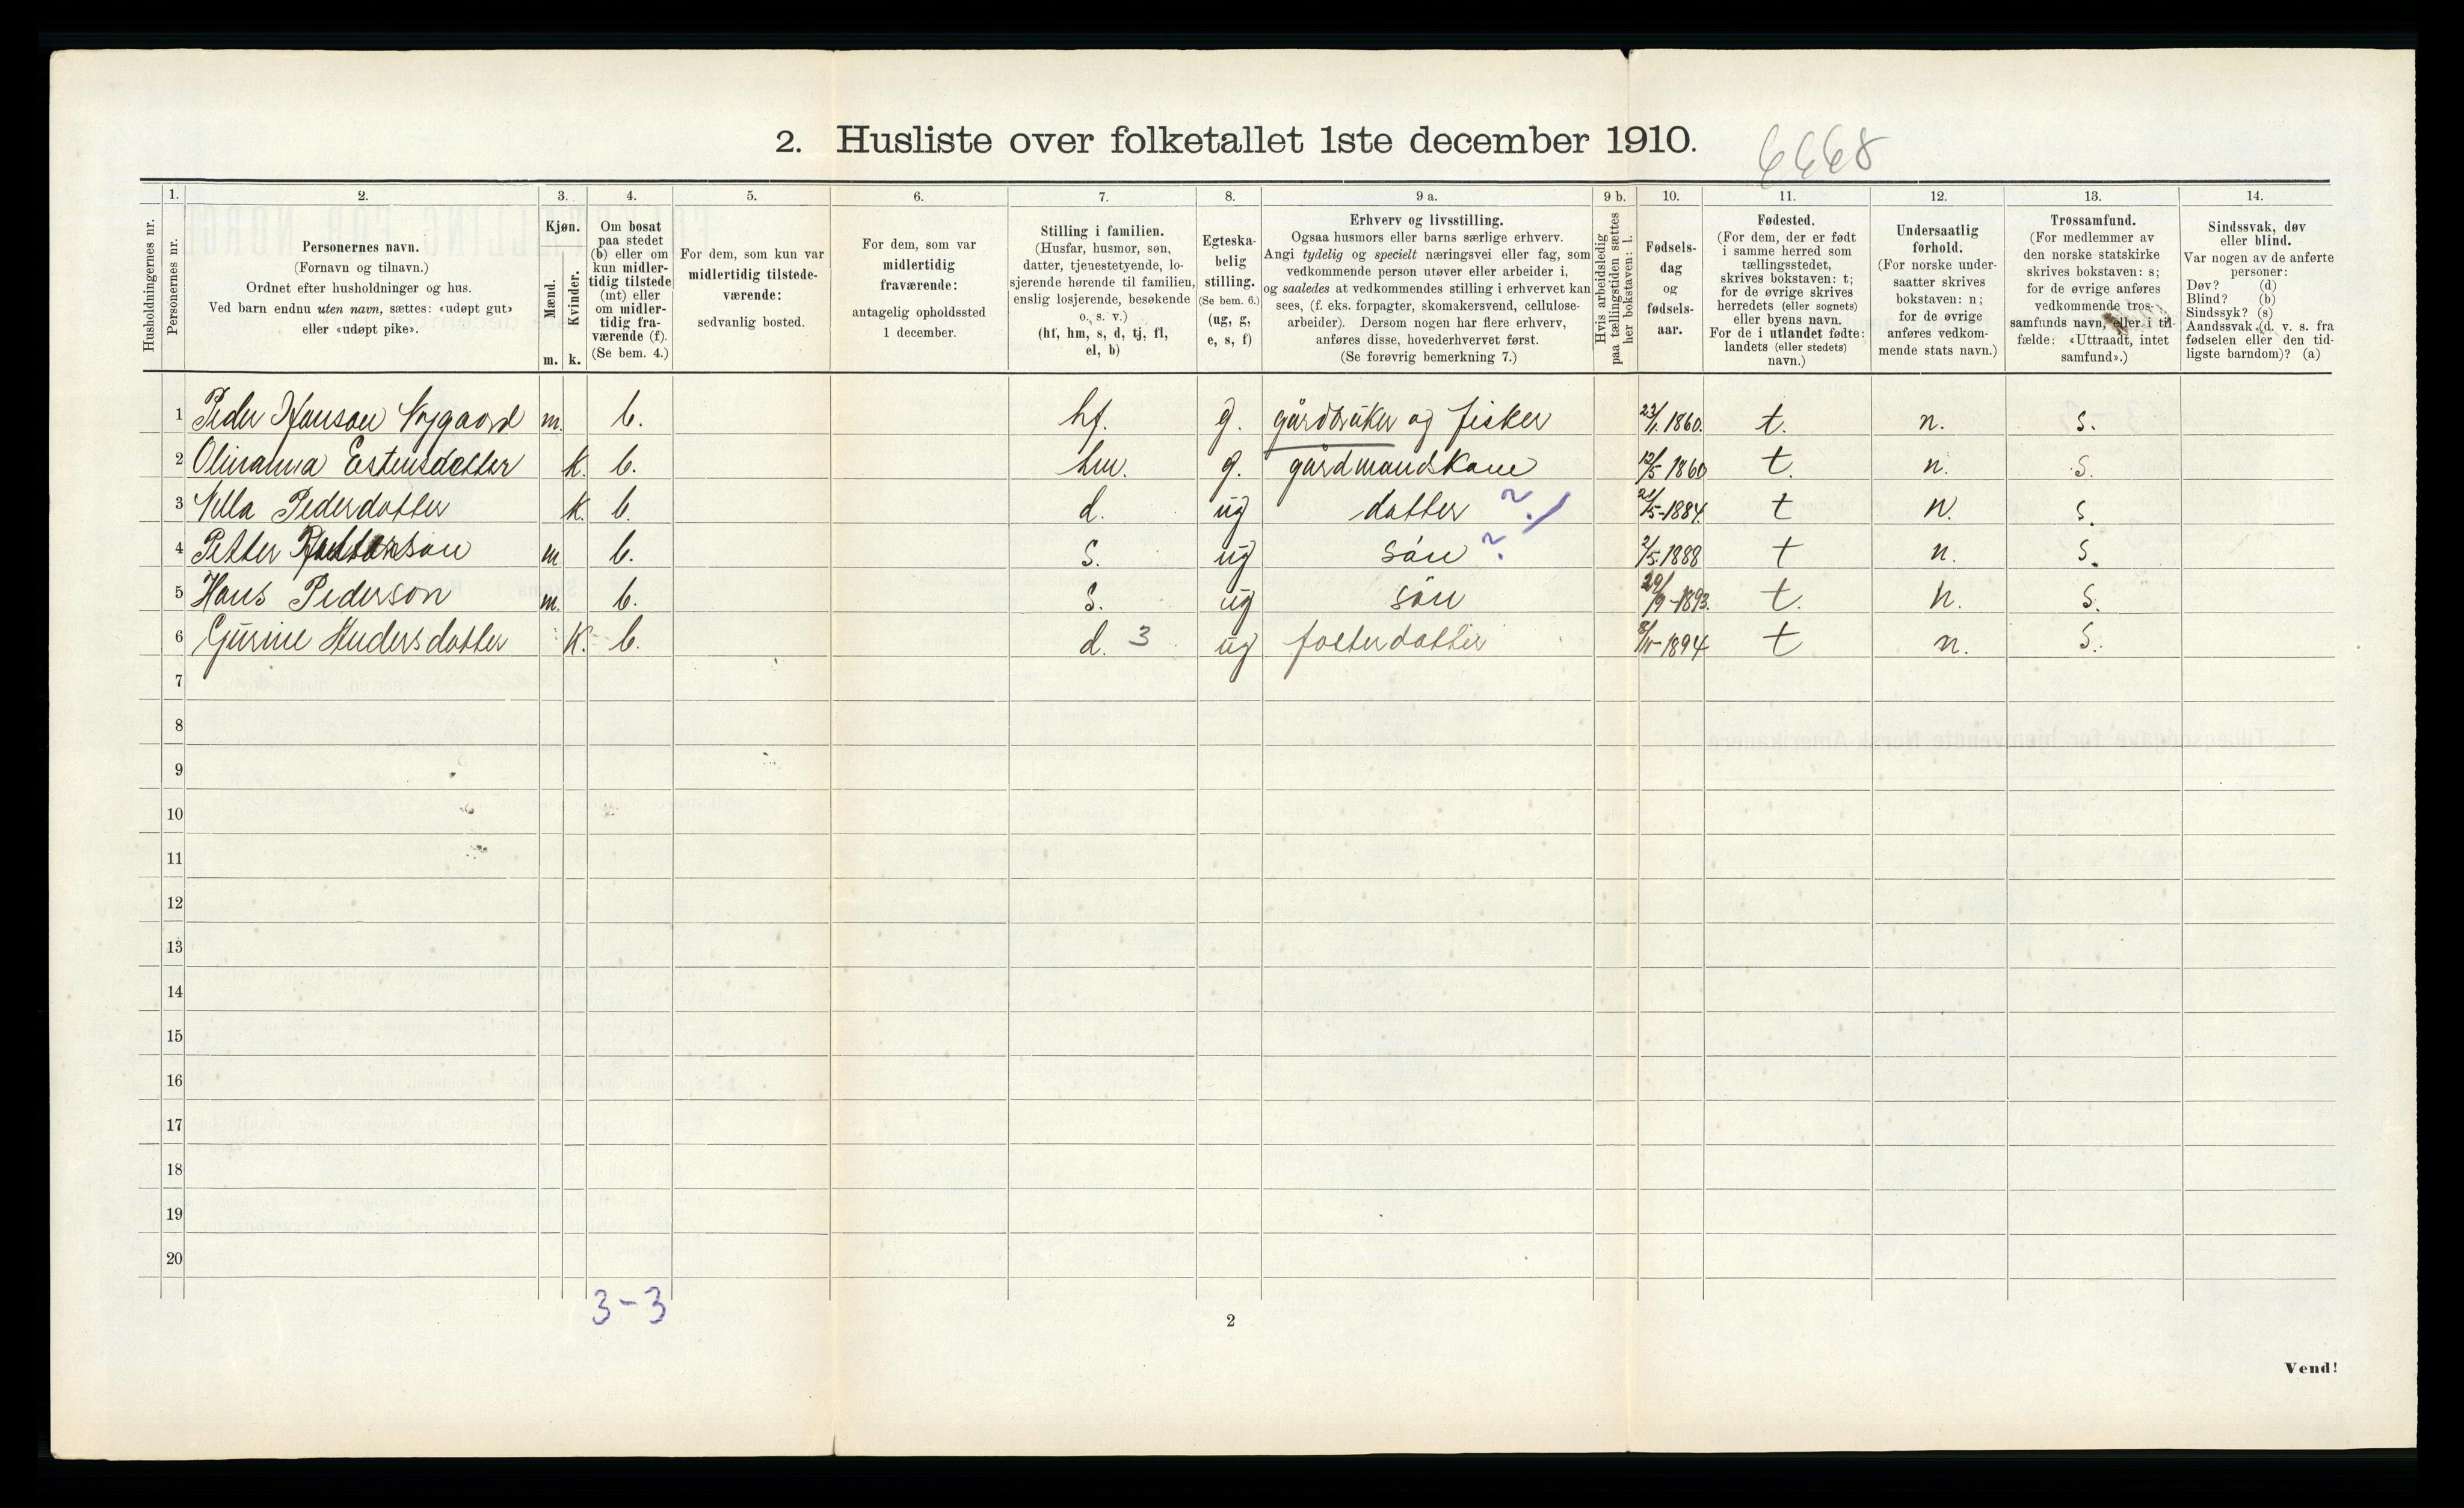 2. Husliste over folketallet 1ste december 1910.
6668
1. 2. 3. 4. 5. 6. 7. 8. 9 a. 9 b. 10. 11. 12. 13. 14.
Husholdningernes nr.
Personernes nr.
Personernes navn.
(Fornavn og tilnavn.)
Ordnet efter husholdninger og hus.
Ved barn endnu uten navn, sættes: «udøpt gut»
eller «udøpt pike».
Kjøn.
Mænd.
Kvinder.
m. k.
Om bosat
paa stedet
(b) eller om
kun midler-
tidig tilstede
(mt) eller
om midler-
tidig fra-
værende (f).
(Se bem. 4.)
For dem, som kun var
midlertidig tilstede-
værende:
sedvanlig bosted.
For dem, som var
midlertidig
fraværende:
antagelig opholdssted
1 december.
Stilling i familien.
(Husfar, husmor, søn,
datter, tjenestetyende, lo-
sjerende hørende til familien,
enslig losjerende, besøkende
o. s. v.)
(hf, hm, s, d, tj, fl,
el, b)
Egteska-
belig
stilling.
(Se bem. 6.)
(ug, g,
e, s, f)
Erhverv og livsstilling.
Ogsaa husmors eller barns særlige erhverv.
Angi tydelig og specielt næringsvei eller fag, som
vedkommende person utøver eller arbeider i,
og saaledes at vedkommendes stilling i erhvervet kan
sees, (f. eks. forpagter, skomakersvend, cellulose-
arbeider). Dersom nogen har flere erhverv,
anføres disse, hovederhvervet først.
(Se forøvrig bemerkning 7.)
Hvis arbeidsledig
paa tællingstiden sættes
her bokstaven: l.
Fødsels-
dag
og
fødsels-
aar.
Fødested.
(For dem, der er født
i samme herred som
tællingsstedet,
skrives bokstaven: t;
for de øvrige skrives
herredets (eller sognets)
eller byens navn.
For de i utlandet fødte:
landets (eller stedets)
navn.)
Undersaatlig
forhold.
(For norske under-
saatter skrives
bokstaven: n;
for de øvrige
anføres vedkom-
mende stats navn.)
Trossamfund.
(For medlemmer av
den norske statskirke
skrives bokstaven: s;
for de øvrige anføres
vedkommende tros-
samfunds navn, eller i til-
fælde: «Uttraadt, intet
samfund».)
Sindssvak, døv
eller blind.
Var nogen av de anførte
personer:
Døv? (d)
Blind? (b)
Sindssyk? (s)
Aandssvak (d. v. s. fra
fødselen eller den tid-
ligste barndom)? (a)
1 Peder Hanson Nygaard m. b. hf. g. gårdbruker og fisker 23/1. 1860. t. n. s.
2 Olinanna Estensdatter k. b. hm. g. gårdmandskone 12/5 1860 t. n. s.
3 Nella Pederdatter k. b. d. ug datter ? / 21/5-1884. t n. s.
4 Petter son m b. s. ug són ? 2/5. 1888 t n. s.
5 Hans Pederson m. b. s. ug són 29/9-1893. t. n. s.
6 Gurine Andersdatter k. b. d. 3 ug fosterdatter 8/11-1894 t n. s.
7
8
9
10
11
12
13
14
15
16
17
18
19
20
3-3
2
Vend!